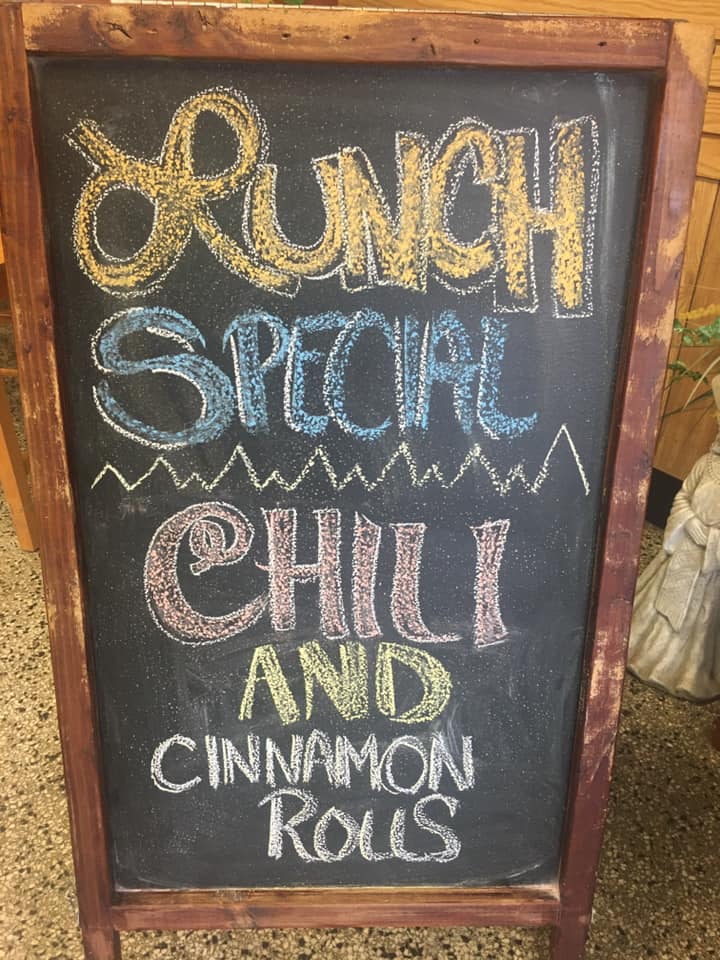 LUNCH
SPECIAL
CHILI
AND
CINNAMON
ROLLS